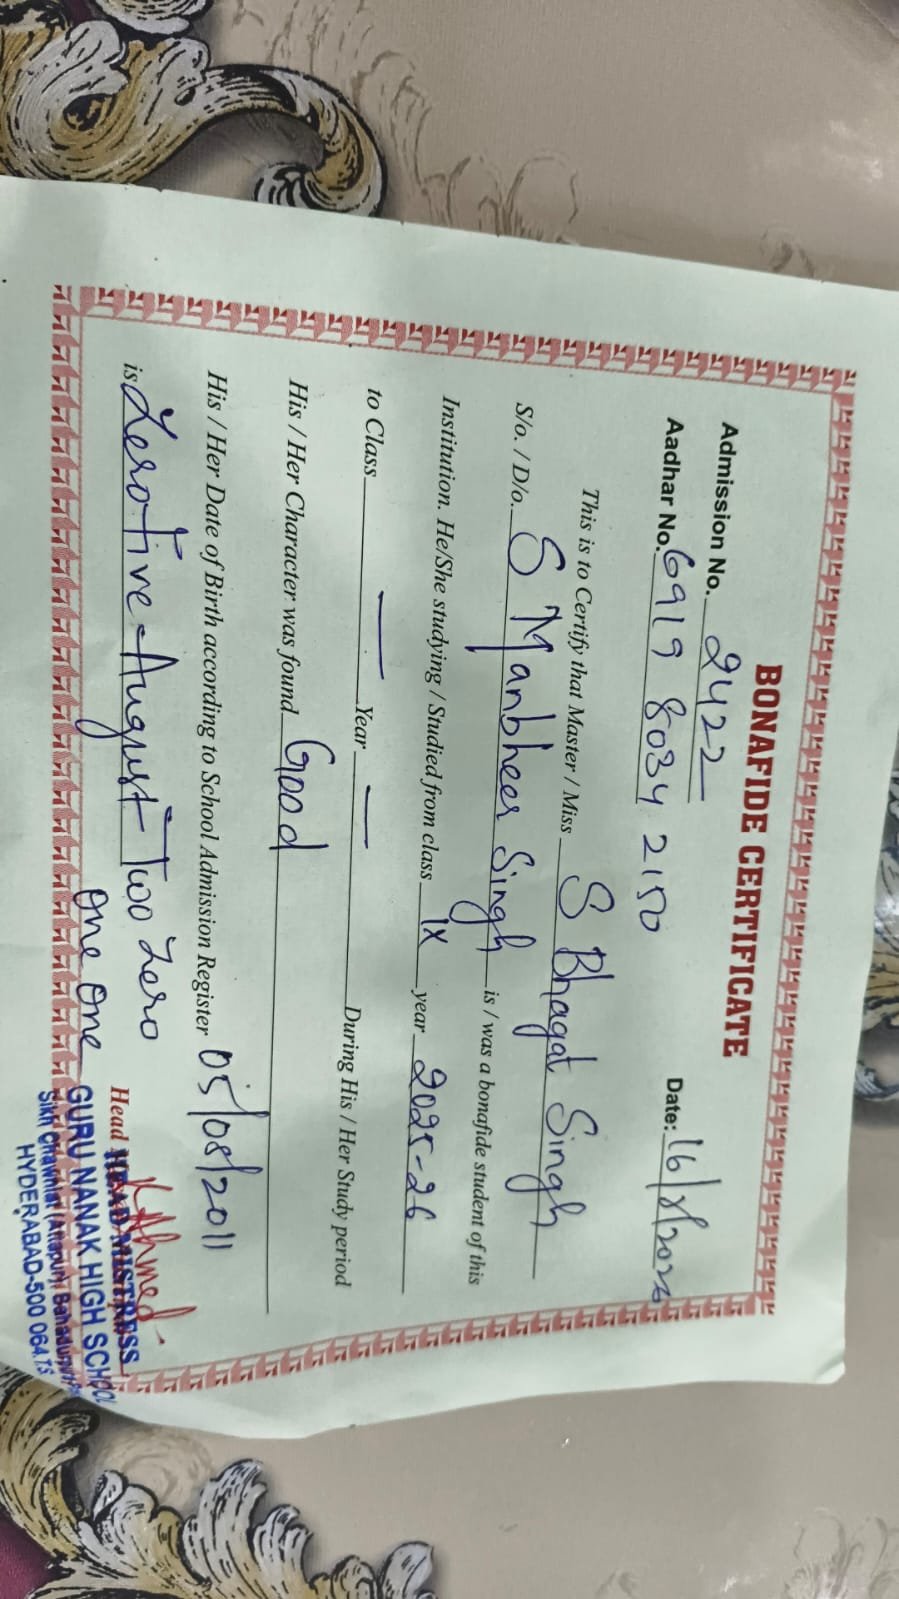 BONAFIDE CERTIFICATE
Admission No. 2422
Aadhar No. 6919 8034 2150 Date: 16/ /2026
This is to Certify that Master / Miss S Bhagat Singh
S/o. / D/o. S Manbheer Singh is / was a bonafide student of this
Institution. He/She studying / Studied from class IX year 2025-26
to Class — Year — During His / Her Study period
His / Her Character was found Good
His / Her Date of Birth according to School Admission Register 05/08/2011
is Zero Five - August Two Zero
One One
Head
HEAD MISTRESS
GURU NANAK HIGH SCHOOL
Sikh Chawni (Attapur),
HYDERABAD-500 064.TS